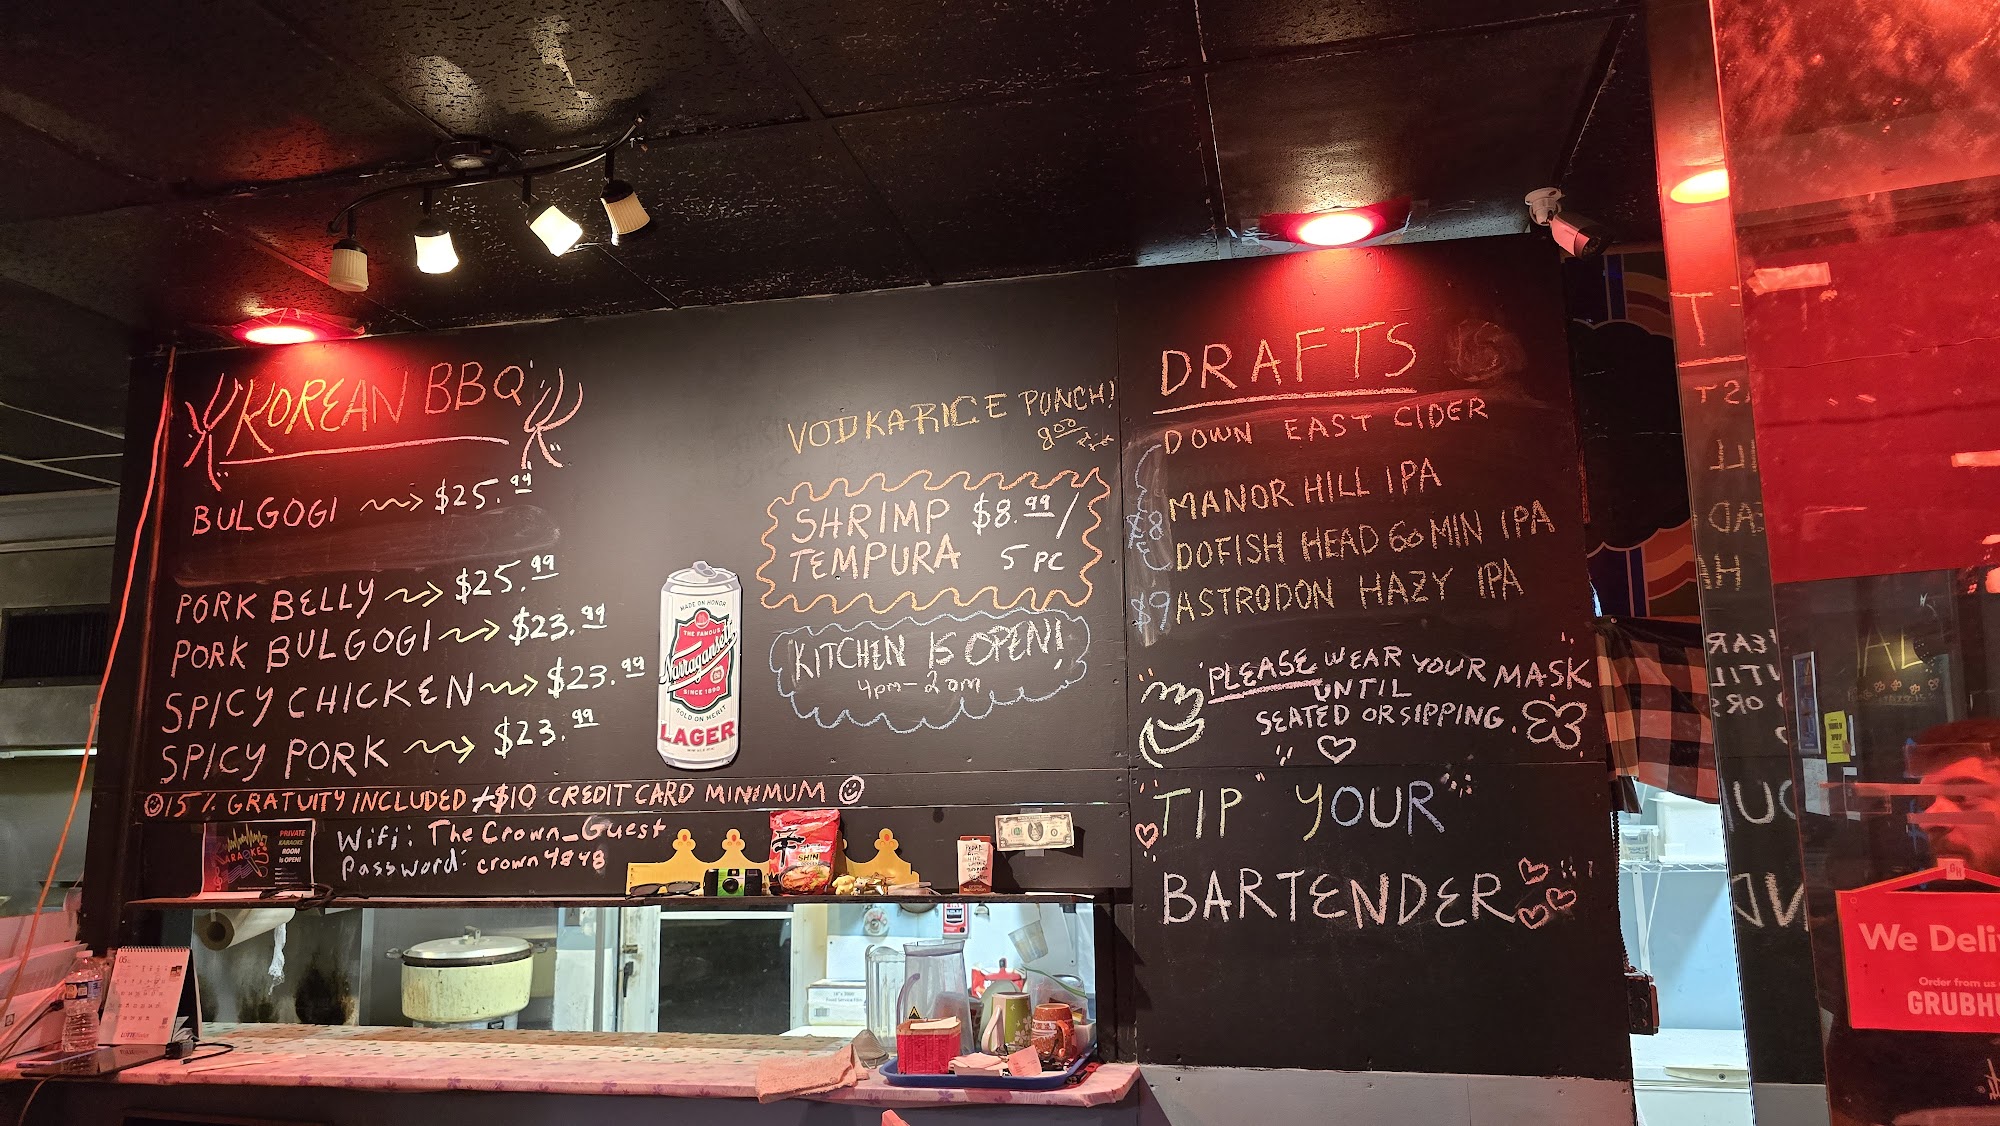 KOREAN BBQ
BULGOGI $25.99
PORK BELLY $25.99
PORK BULGOGI $23.99
SPICY CHICKEN $23.99
SPICY PORK $23.99
15% GRATUITY INCLUDED + $10 CREDIT CARD MINIMUM
Wifi: The Crown_Guest
Password: crown4848
PRIVATE
KARAOKE
ROOM
is OPEN!
KARAOKE
MADE ON HONOR
THE FAMOUS
Narragansett
SINCE 1890
SOLD ON MERIT
LAGER
VODKA RICE PUNCH!
8.00
SHRIMP $8.99/
TEMPURA 5 PC
KITCHEN IS OPEN!
4pm-2am
辛
SHIN
DRAFTS
DOWN EAST CIDER
MANOR HILL IPA
$8
DOFISH HEAD 60 MIN IPA
$9 ASTRODON HAZY IPA
PLEASE WEAR YOUR MASK
UNTIL
SEATED OR SIPPING.
"TIP" YOUR
BARTENDER
We Deli
Order from us
GRUBH
05